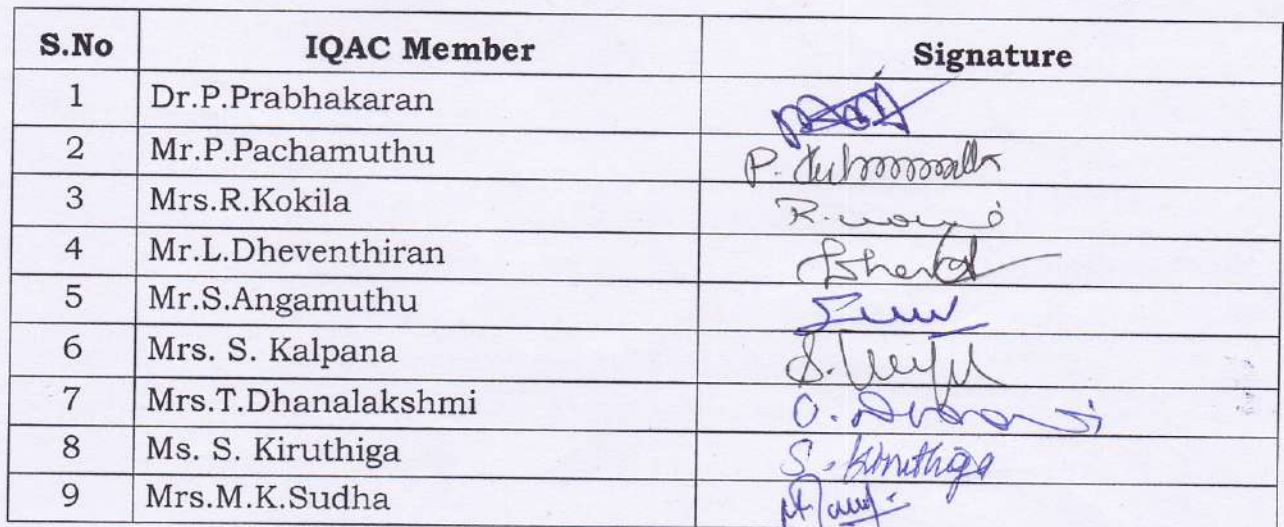 S.No IQAC Member Signature
1 Dr.P.Prabhakaran
2 Mr.P.Pachamuthu P.
3 Mrs.R.Kokila R.
4 Mr.L.Dheventhiran
5 Mr.S.Angamuthu
6 Mrs. S. Kalpana S.
7 Mrs.T.Dhanalakshmi
8 Ms. S. Kiruthiga S. Kiruthiga
9 Mrs.M.K.Sudha